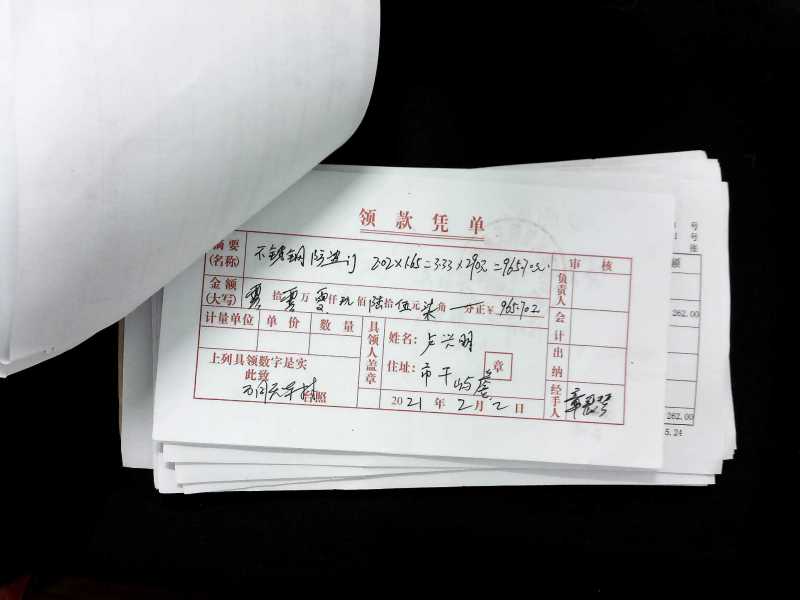 领款凭单
摘要
(名称)
不锈钢防盗门 2.02×1.65=3.33×290元=965.70元.
审核
金额
(大写)
零拾零万零仟玖佰陆拾伍元柒角一分正¥965.70元
计量单位 单价 数量
具领人盖章
姓名:卢兴明
住址:市干
章
上列具领数字是实
此致
照
2021年2月2日
负责人
会计
出纳
经手人
号
号
张
额
262.00
262.00
5.24